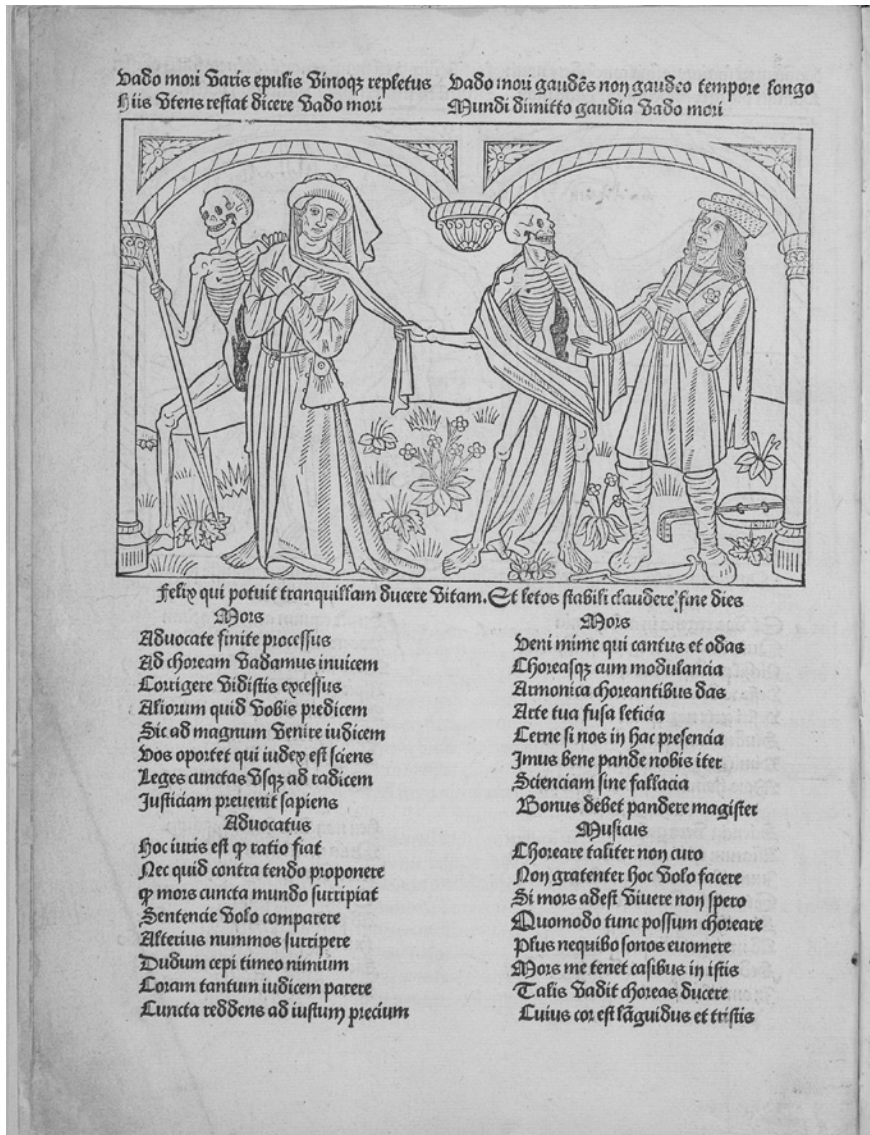 Vado mori Varis epulis Vinoqz repletus
Hiis Vtens restat dicere Vado mori
Vado mori gaudēs non gaudeo tempore longo
Mundi dimitto gaudia Vado mori
Felix qui potuit tranquillam ducere Vitam. Et letos stabili claudere fine dies
Mors
Aduocate finite processus
Ad choream Vadamus inuicem
Corrigere Vidistis excessus
Aliorum quid Vobis predicem
Sic ad magnum Venire iudicem
Vos oportet qui iudex est sciens
Leges cunctas Vsqz ad radicem
Iusticiam preuenit sapiens
Aduocatus
Hoc iuris est ꝙ ratio fiat
Nec quid contra tendo proponere
ꝙ mors cuncta mundo surripiat
Sentencie Volo comparere
Alterius nummos surripere
Dudum cepi timeo nimium
Coram tantum iudicem parere
Cuncta reddens ad iustum precium
Mors
Veni mime qui cantus et odas
Choreasqz cum modulancia
Armonica choreantibus das
Arte tua fusa leticia
Cerne si nos in hac presencia
Imus bene pande nobis iter
Scienciam sine fallacia
Bonus debet pandere magister
Musicus
Choreare taliter non curo
Non gratenter hoc Volo facere
Si mors adest Viuere non spero
Quomodo tunc possum choreare
Plus nequibo sonos euomere
Mors me tenet casibus in istis
Talis Vadit choreas ducere
Cuius cor est lāguidus et tristis